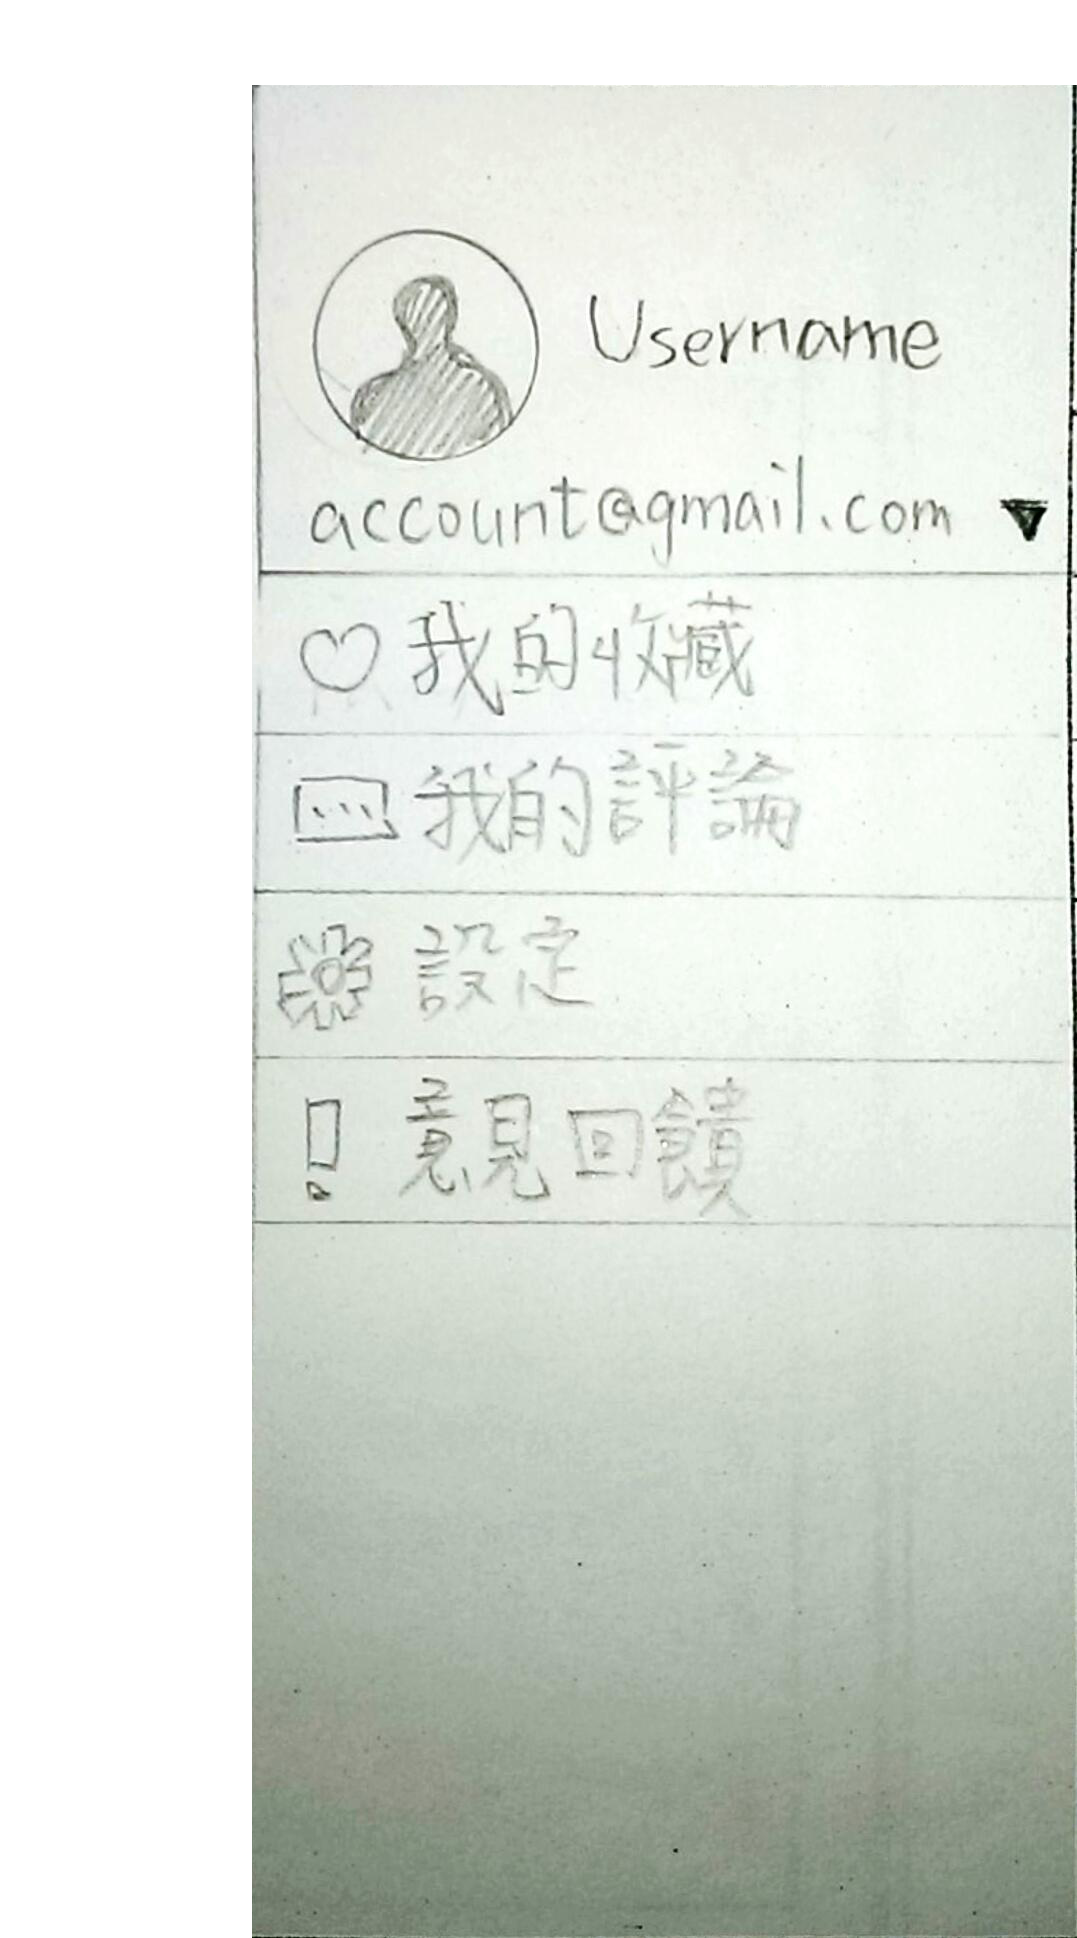 Username
account@gmail.com
我的收藏
我的評論
設定
意見回饋